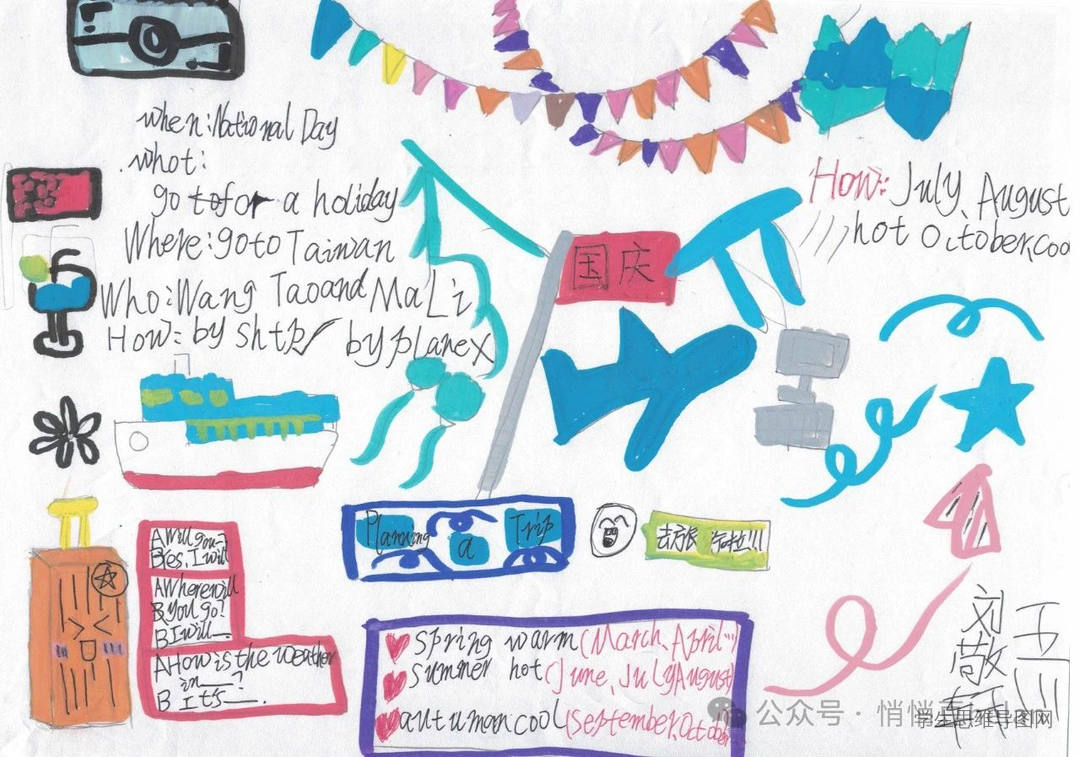 when:National Day
what:
go to for a holiday
Where:goto Taiwan
Who:Wang Taoand MaLi
How: by ship✓ by planeX
How: July、August
hot October coo
国庆
Planning a Trip
去旅行啦!!!
A Will you—?
B Yes, I will
A Where will
B you go?
B I will—.
A How is the weather
in—?
B It's—.
spring warm (March、April…)
summer hot (June、July August)
autuman cool (September、October
五
刘敬轩
公众号·悄悄
学生思维导图网